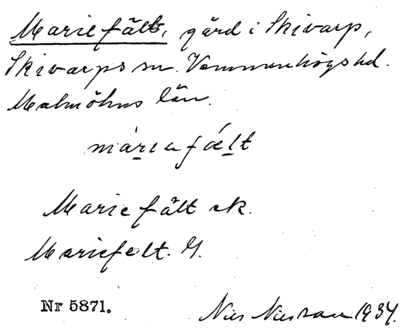 Mariefält, gård i Skivarp,
Skivarps sn. Vemmenhögs hd.
Malmöhus län.
Mariefält ek.
Mariefelt. G.
Nr 5871.
Nils 1934.